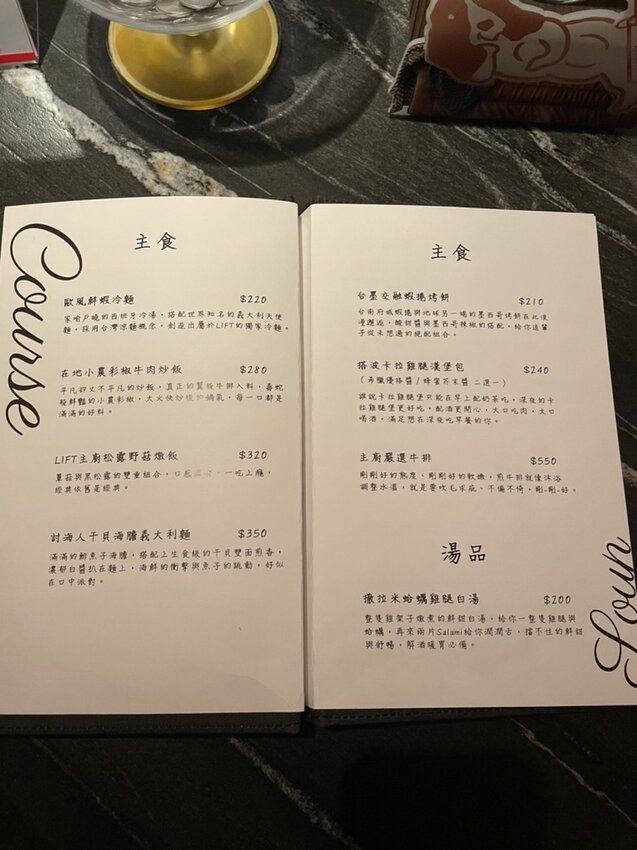 Course
主食
歐風鮮蝦冷麵 $220
家喻戶曉的西班牙冷湯，搭配世界知名的義大利天使
麵，採用台灣涼麵概念，創造出屬於LIFT的獨家冷麵。
在地小農彩椒牛肉炒飯 $280
平凡卻又不平凡的炒飯，真正的翼板牛排入料，毒蛇
般鮮豔的小農彩椒，大火快炒後的鑊氣，每一口都是
滿滿的好料。
LIFT主廚松露野菇燉飯 $320
蕈菇與黑松露的雙重組合，口感 一吃上癮，
經典依舊是經典。
討海人干貝海膽義大利麵 $350
滿滿的鯡魚子海膽，搭配上生食級的干貝雙面煎香，
濃郁白醬扒在麵上，海鮮的衝擊與魚子的跳動，好似
在口中派對。
主食
台墨交融蝦捲烤餅 $210
台南府城蝦捲與地球另一端的墨西哥烤餅在此浪
漫邂逅，酸甜醬與墨西哥辣椒的搭配，給你這輩
子從未想過的絕配組合。
搭波卡拉雞腿漢堡包 $240
（希臘優格醬/蜂蜜芥末醬 二選一）
誰說卡拉雞腿堡只能在早上配奶茶吃，深夜的卡
拉雞腿堡更好吃，配酒更開心，大口吃肉，大口
喝酒，滿足想在深夜吃早餐的你。
主廚嚴選牛排 $550
剛剛好的熟度、剛剛好的軟嫩，煎牛排就像沐浴
調整水溫，就是要吹毛求疵、不偏不倚，剛-剛-好。
湯品
撒拉米蛤蠣雞腿白湯 $200
整隻雞架子燉煮的鮮甜白湯，給你一整隻雞腿與
蛤蠣，再來兩片Salami給你潤潤舌，擋不住的鮮甜
與舒暢，解酒暖胃必備。